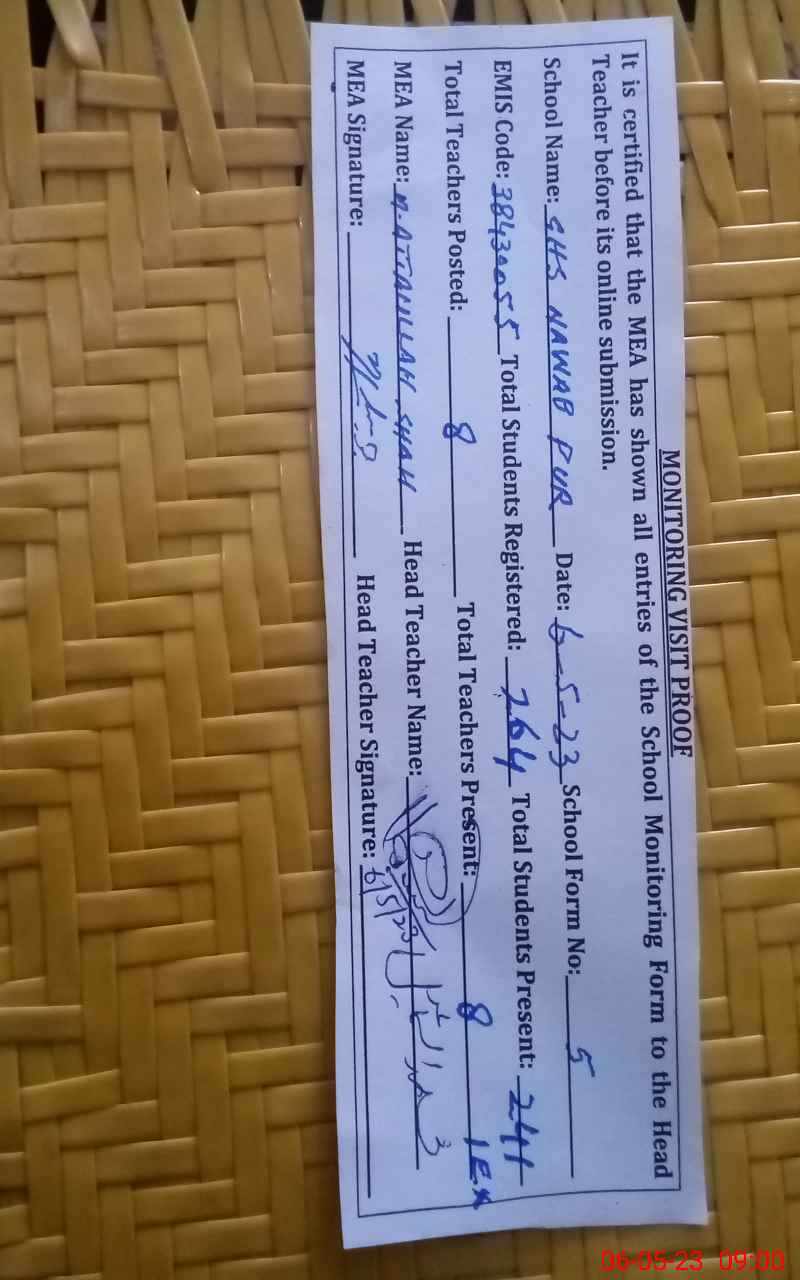 MONITORING VISIT PROOF
It is certified that the MEA has shown all entries of the School Monitoring Form to the Head
Teacher before its online submission.
School Name: GHS NAWAB PUR Date: 6-5-23 School Form No: 5
EMIS Code: 38430055 Total Students Registered: 264 Total Students Present: 241
Total Teachers Posted: 8 Total Teachers Present: 8 1E.
MEA Name: M. ATTAULLAH SHAH Head Teacher Name:
MEA Signature: Head Teacher Signature: 6/5/20
06-05-23 09:00